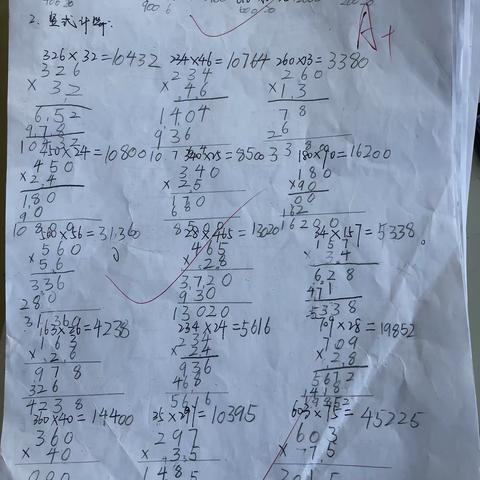 2. 竖式计算.
A+
326×32=10432 234×46=10764 260×13=3380
326 234 260
×32 ×46 ×1.3
652 1404 78
978 936 26
10432 10764 3380
450×24=10800 340×25=8500 180×90=16200
450 340 180
×2.4 ×25 ×90
180 170 00
90 680 162
10800 8500 16200
560×56=31360 28×465=13020 34×157=5338
560 465 157
×56 ×2.8 ×3.4
336 3720 628
280 930 471
31360 13020 5338
163×26=4238 234×24=5616 709×28=19852
163 234 709
×2.6 ×24 ×2.8
978 936 5672
326 468 1418
4238 5616 19852
360×40=14400 35×297=10395 603×75=45225
360 297 603
×40 ×3.5 ×7.5
1485 3015